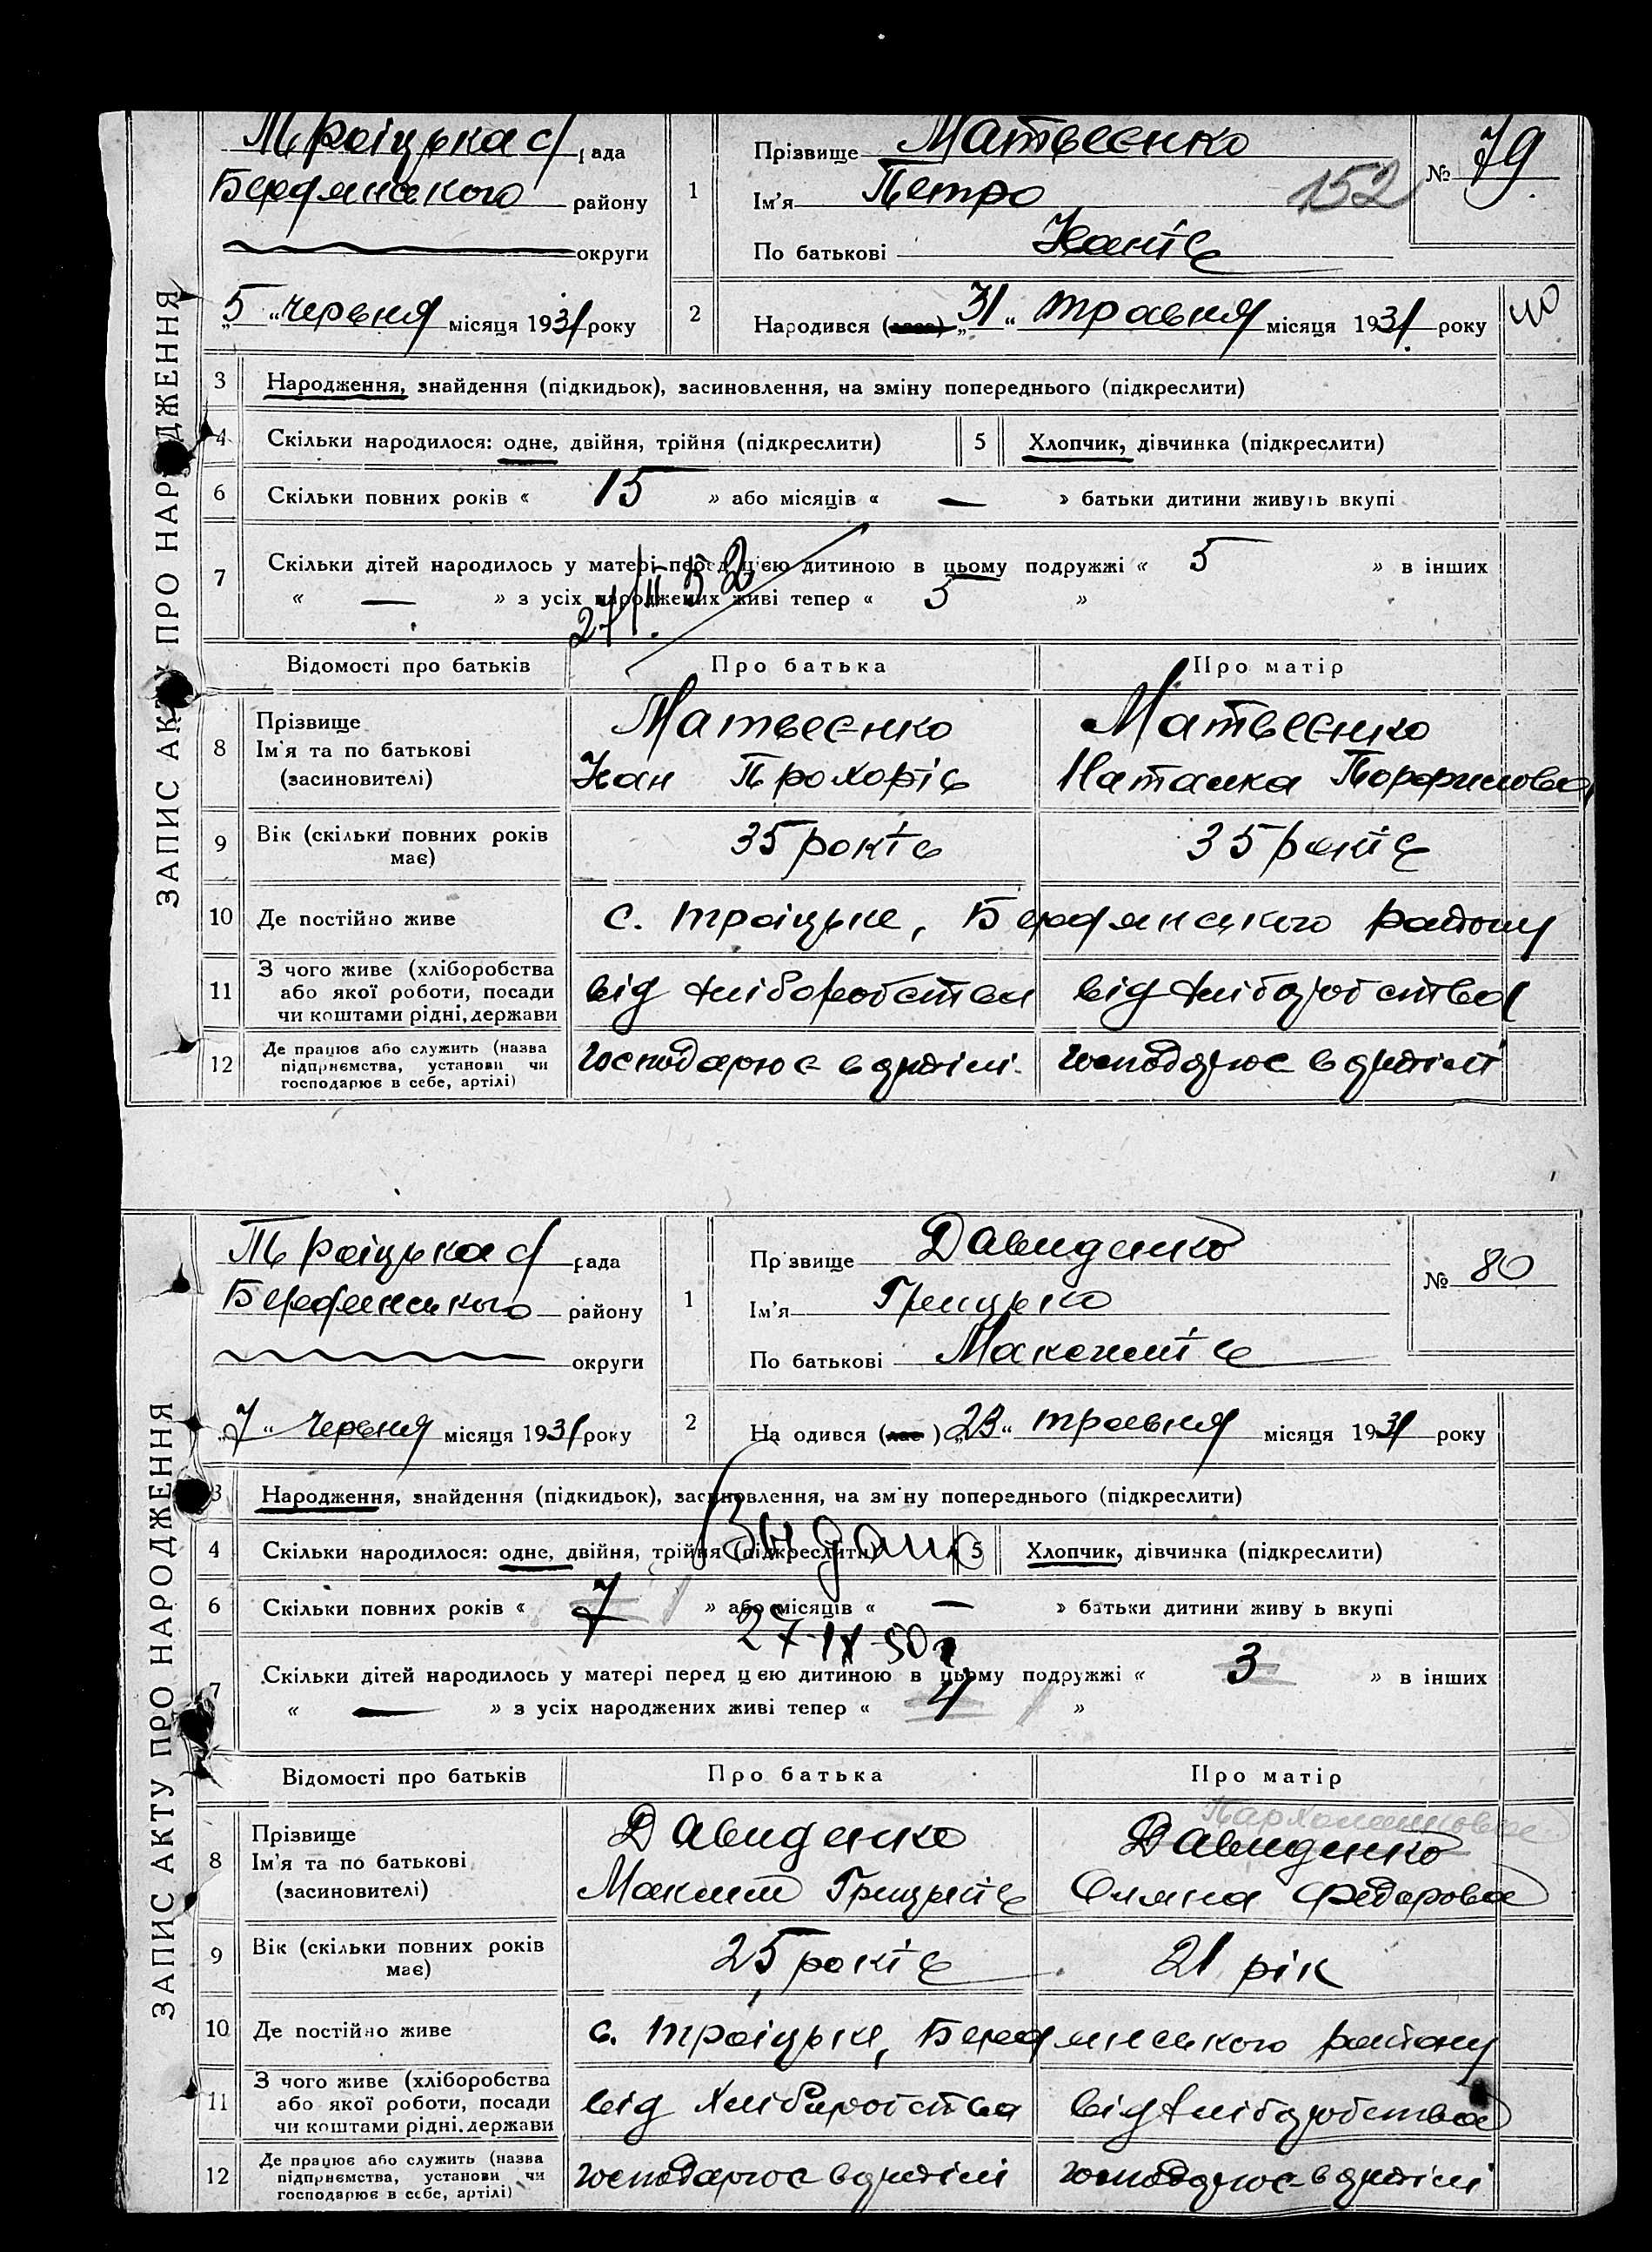 ЗАПИС АКТУ ПРО НАРОДЖЕННЯ
Троіцька с/рада
Бердянського району
округи
„5“ червня місяця 1931 року
1
Прізвище Матвеєнко
Ім'я Петро
152
По батькові Іванів
№ 79
2
Народився (лась) „31“ травня місяця 1931 року
3 Народження, знайдення (підкидьок), засиновлення, на зміну попереднього (підкреслити)
4 Скільки народилося: одне, двійня, трійня (підкреслити) 5 Хлопчик, дівчинка (підкреслити)
6 Скільки повних років « 15 » або місяців « — » батьки дитини живуть вкупі
7 Скільки дітей народилось у матері перед цією дитиною в цьому подружжі « 5 » в інших
« — » з усіх народжених живі тепер « 5 »
27/II 52
Відомості про батьків Про батька Про матір
8 Прізвище Матвеєнко Матвеєнко
Ім'я та по батькові Іван Прохорів Наталка
(засиновителі)
9 Вік (скільки повних років має) 35 років 35 років
10 Де постійно живе с. Троіцьке, Бердянського району
11 З чого живе (хліборобства
або якої роботи, посади від хліборобства від хліборобства
чи коштами рідні, держави
12 Де працює або служить (назва
підприємства, установи чи господарює в артілі господарює в артілі
господарює в себе, артілі)
ЗАПИС АКТУ ПРО НАРОДЖЕННЯ
Троіцька с/рада
Бердянського району
округи
„7“ червня місяця 1931 року
1
Прізвище Давиденко
Ім'я Грицько
По батькові Максимів
№ 80
2
Народився (лась) „23“ травня місяця 1931 року
3 Народження, знайдення (підкидьок), засиновлення, на зміну попереднього (підкреслити)
4 Скільки народилося: одне, двійня, трійня (підкреслити) 5 Хлопчик, дівчинка (підкреслити)
6 Скільки повних років « 7 » або місяців « — » батьки дитини живуть вкупі
27-IX-50г
7 Скільки дітей народилось у матері перед цією дитиною в цьому подружжі « 3 » в інших
« — » з усіх народжених живі тепер « 4 »
Відомості про батьків Про батька Про матір
8 Прізвище Давиденко Давиденко
Ім'я та по батькові Максим Грицьків Оляна Федорова
(засиновителі)
9 Вік (скільки повних років має) 25 років 21 рік
10 Де постійно живе с. Троіцьке, Бердянського району
11 З чого живе (хліборобства
або якої роботи, посади від хліборобства від хліборобства
чи коштами рідні, держави
12 Де працює або служить (назва
підприємства, установи чи господарює в артілі господарює в артілі
господарює в себе, артілі)